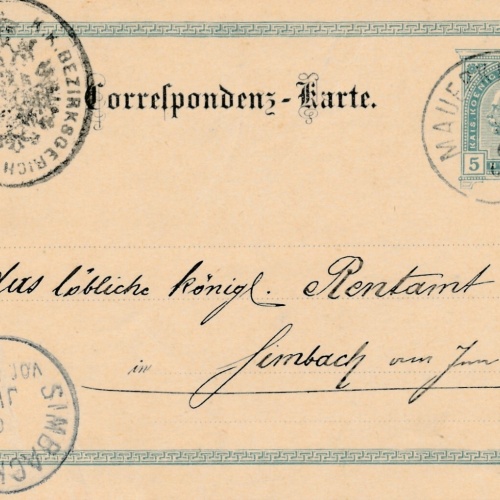 K.K. BEZIRKSGERICH
Correspondenz-Karte.
MAUER
KAIS. KOENIG
5
das löbliche königl. Rentamt
im
Simbach am Inn
SIMBACH